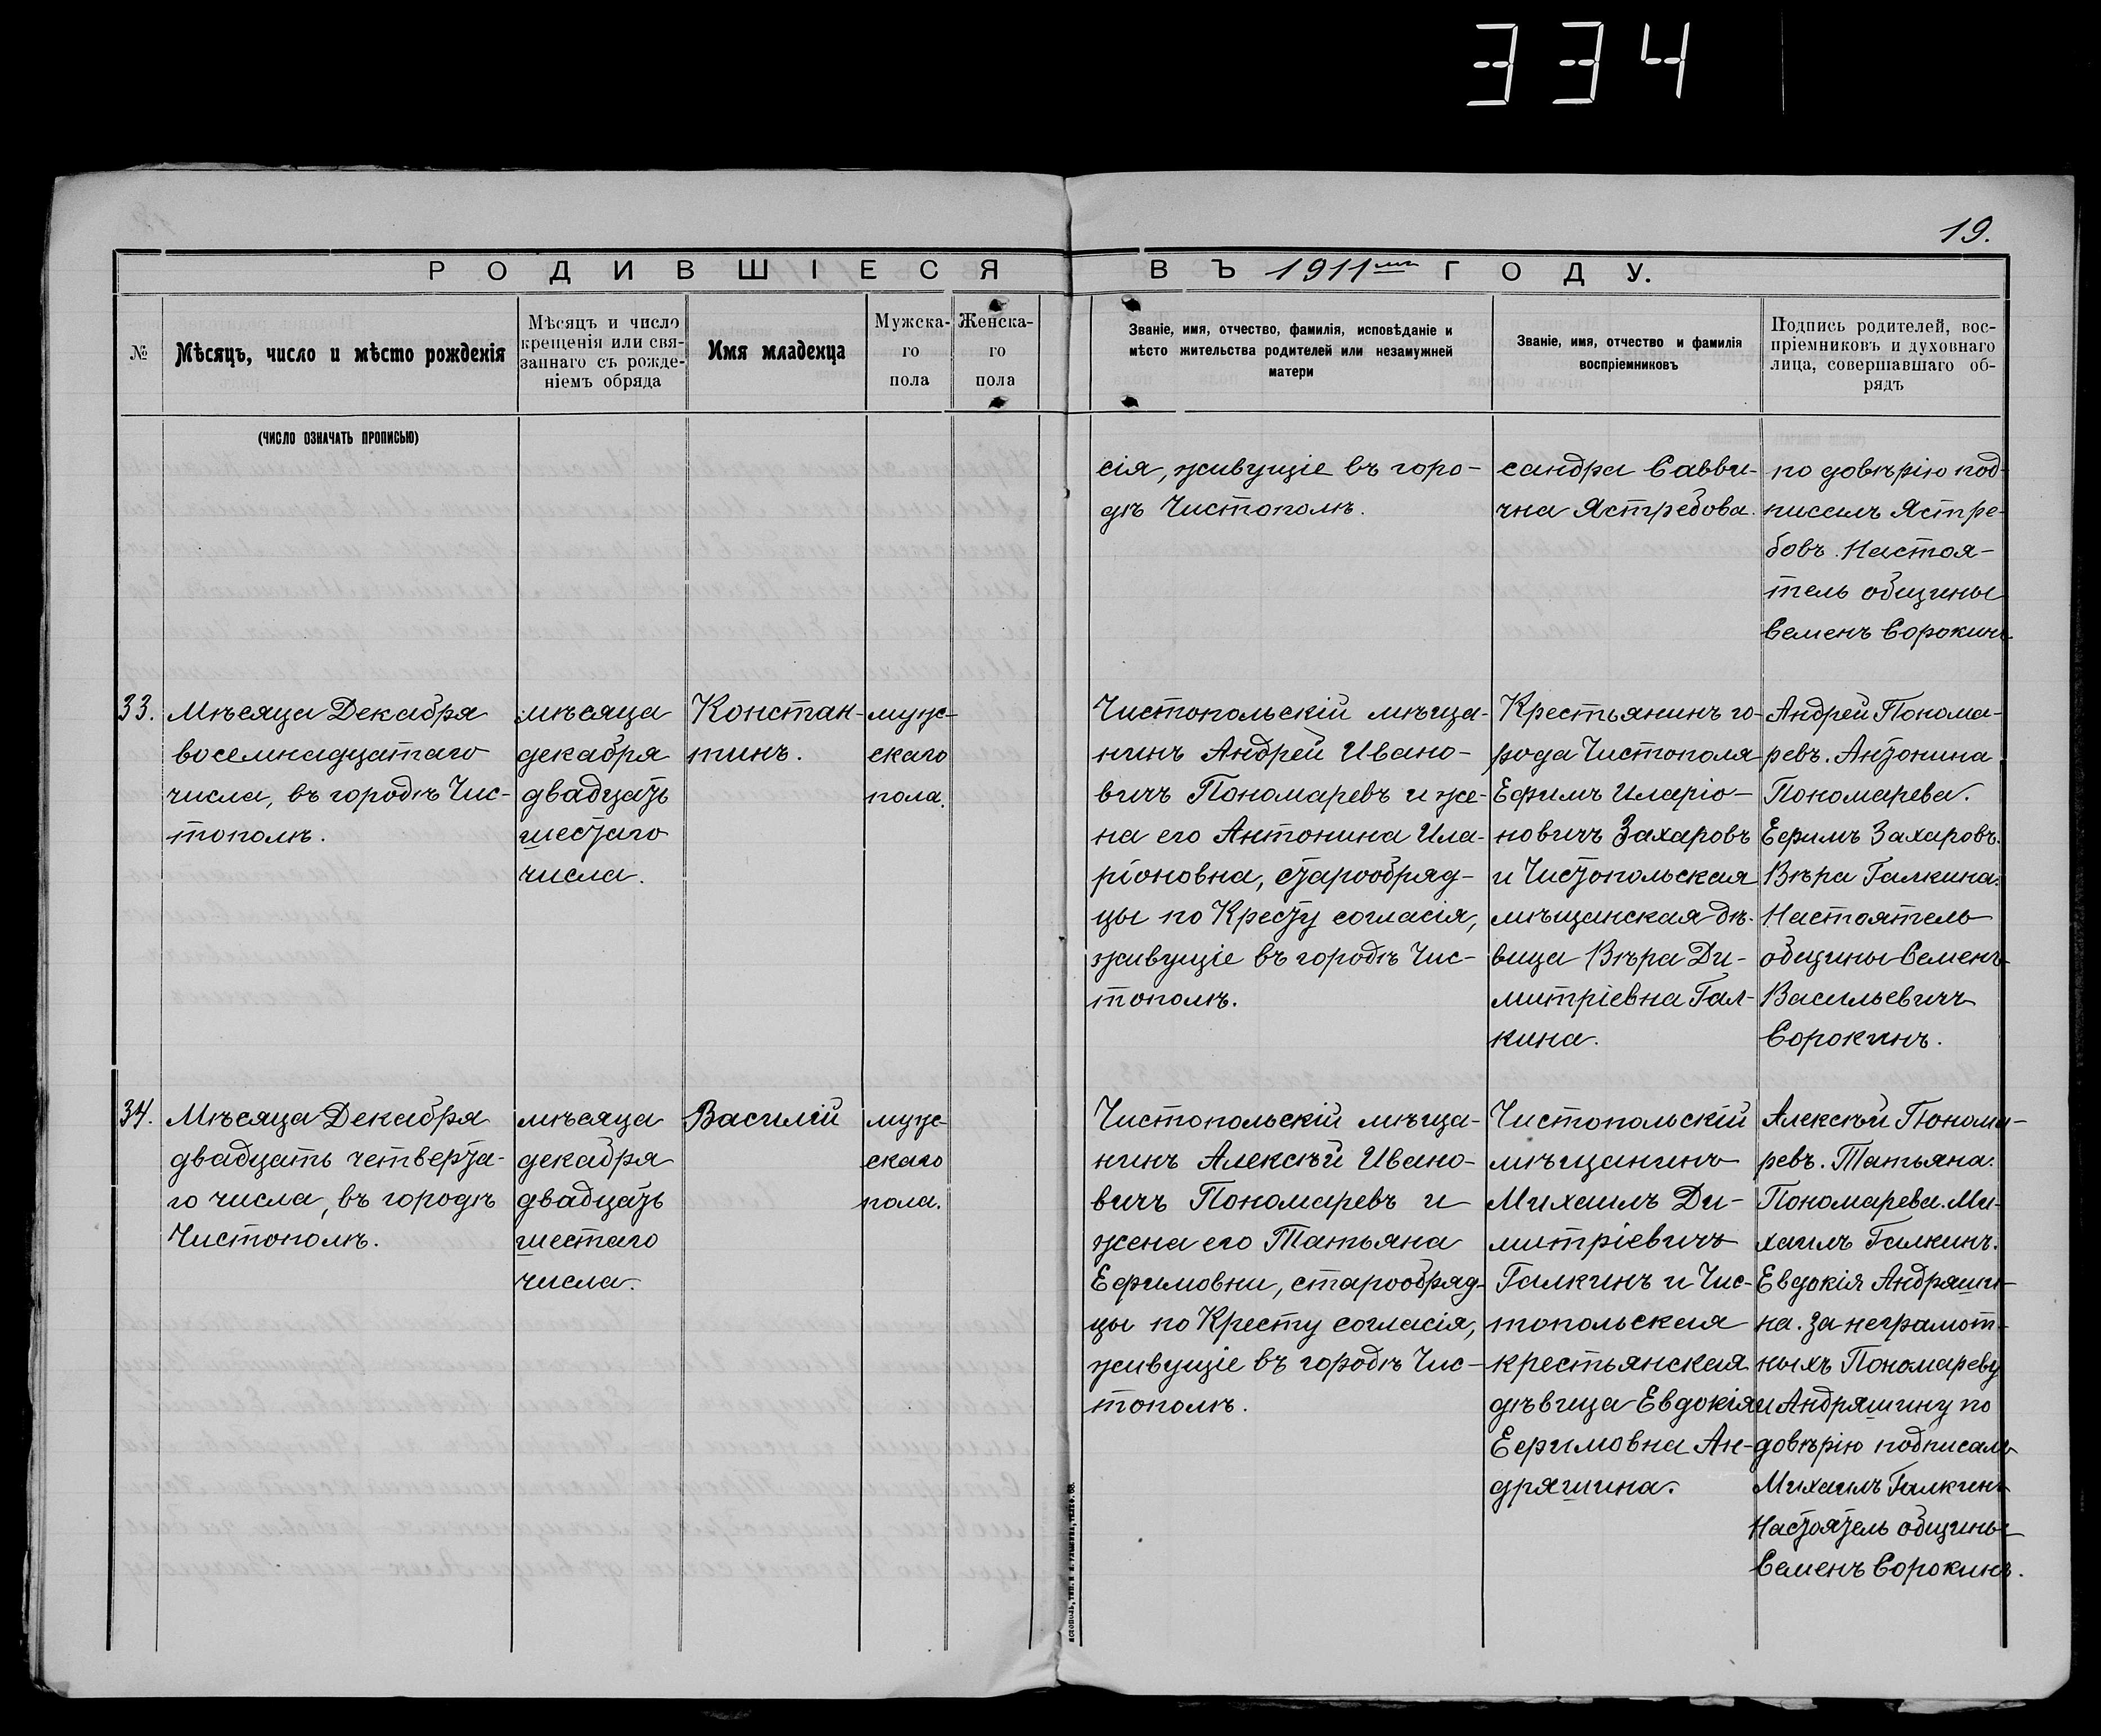 334
19.
РОДИВШІЕСЯ ВЪ 1911мъ ГОДУ.
№
Мѣсяцъ, число и мѣсто рожденія
Мѣсяцъ и число
крещенія или свя-
заннаго съ рожде-
ніемъ обряда
Имя младенца
Мужска-
го
пола
Женска-
го
пола
Званіе, имя, отчество, фамилія, исповѣданіе и
мѣсто жительства родителей или незамужней
матери
Званіе, имя, отчество и фамилія
воспріемниковъ
Подпись родителей, вос-
пріемниковъ и духовнаго
лица, совершавшаго об-
рядъ
(ЧИСЛО ОЗНАЧАТЬ ПРОПИСЬЮ)
сія, живущіе въ горо-
дѣ Чистополѣ.
сандра Савви-
чна Ястребова.
по довѣрію под-
писалъ Ястре-
бовъ. Настоя-
тель общины
Семенъ Сорокинъ
33.
Мѣсяца Декабря
восемнадцатаго
числа, въ городѣ Чис-
тополѣ.
мѣсяца
декабря
двадцать
шестаго
числа.
Констан-
тинъ.
муж-
скаго
пола.
Чистопольскій мѣща-
нинъ Андрей Ивано-
вичъ Пономаревъ и же-
на его Антонина Ила-
ріоновна, старообряд-
цы по Кресту согласія,
живущіе въ городѣ Чис-
тополѣ.
Крестьянинъ го-
рода Чистополя
Ефимъ Иларіо-
новичъ Захаровъ
и Чистопольская
мѣщанская дѣ-
вица Вѣра Ди-
митріевна Гал-
кина.
Андрей Понома-
ревъ. Антонина
Пономарева.
Ефимъ Захаровъ.
Вѣра Галкина.
Настоятель
общины Семенъ
Васильевичъ
Сорокинъ.
34.
Мѣсяца Декабря
двадцать четверта-
го числа, въ городѣ
Чистополѣ.
мѣсяца
декабря
двадцать
шестаго
числа.
Василій
муж-
скаго
пола.
Чистопольскій мѣща-
нинъ Алексѣй Ивано-
вичъ Пономаревъ и
жена его Татьяна
Ефимовна, старообряд-
цы по Кресту согласія,
живущіе въ городѣ Чис-
тополѣ.
Чистопольскій
мѣщанинъ
Михаилъ Ди-
митріевичъ
Галкинъ и Чис-
топольская
крестьянская
дѣвица Евдокія
Ефимовна Ан-
дряшина.
Алексѣй Понома-
ревъ. Татьяна
Пономарева. Ми-
хаилъ Галкинъ.
Евдокія Андряши-
на. За неграмот-
ныхъ Пономареву
и Андряшину по
довѣрію подписалъ
Михаилъ Галкинъ
Настоятель общины
Семенъ Сорокинъ.